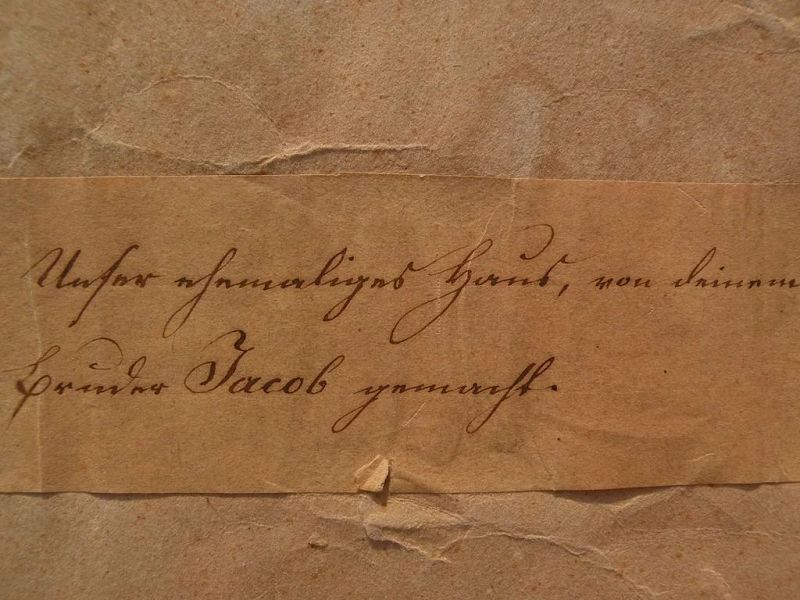 Unser ehemaliges Haus, von deinem
Bruder Jacob gemacht.